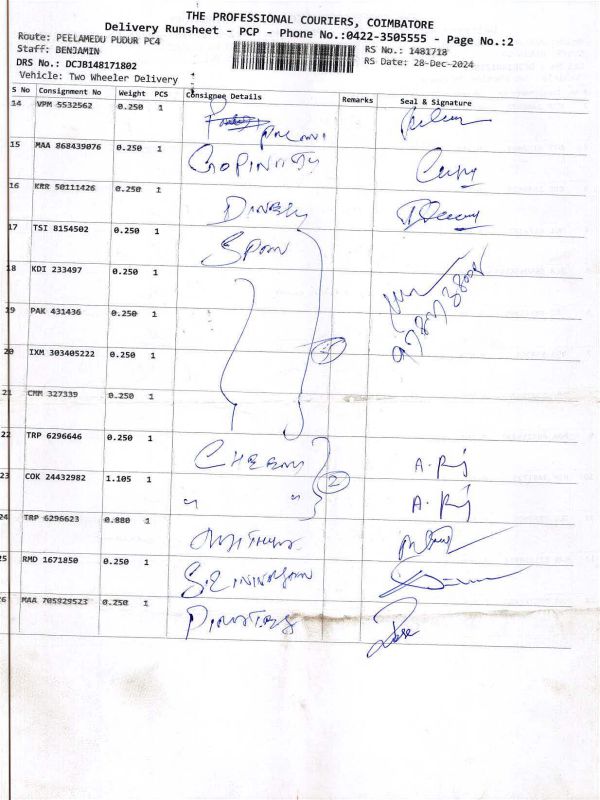 THE PROFESSIONAL COURIERS, COIMBATORE
Delivery Runsheet - PCP - Phone No.:0422-3505555 - Page No.:2
Route: PEELAMEDU PUDUR PC4
RS No.: 1481718
Staff: BENJAMIN
RS Date: 28-Dec-2024
DRS No.: DCJB148171802
Vehicle: Two Wheeler Delivery
S No Consignment No Weight PCS Consignee Details Remarks Seal & Signature
14 VPM 5532562 0.250 1
15 MAA 868439076 0.250 1 GOPINATH
16 KRR 50111426 0.250 1 DINESH
17 TSI 8154502 0.250 1
18 KDI 233497 0.250 1
19 PAK 431436 0.250 1
20 IXM 303405222 0.250 1
21 CMM 327339 0.250 1
22 TRP 6296646 0.250 1 A. Raj
23 COK 24432982 1.105 1 " " 2 A. Raj
24 TRP 6296623 0.880 1
25 RMD 1671850 0.250 1
26 MAA 705929523 0.250 1